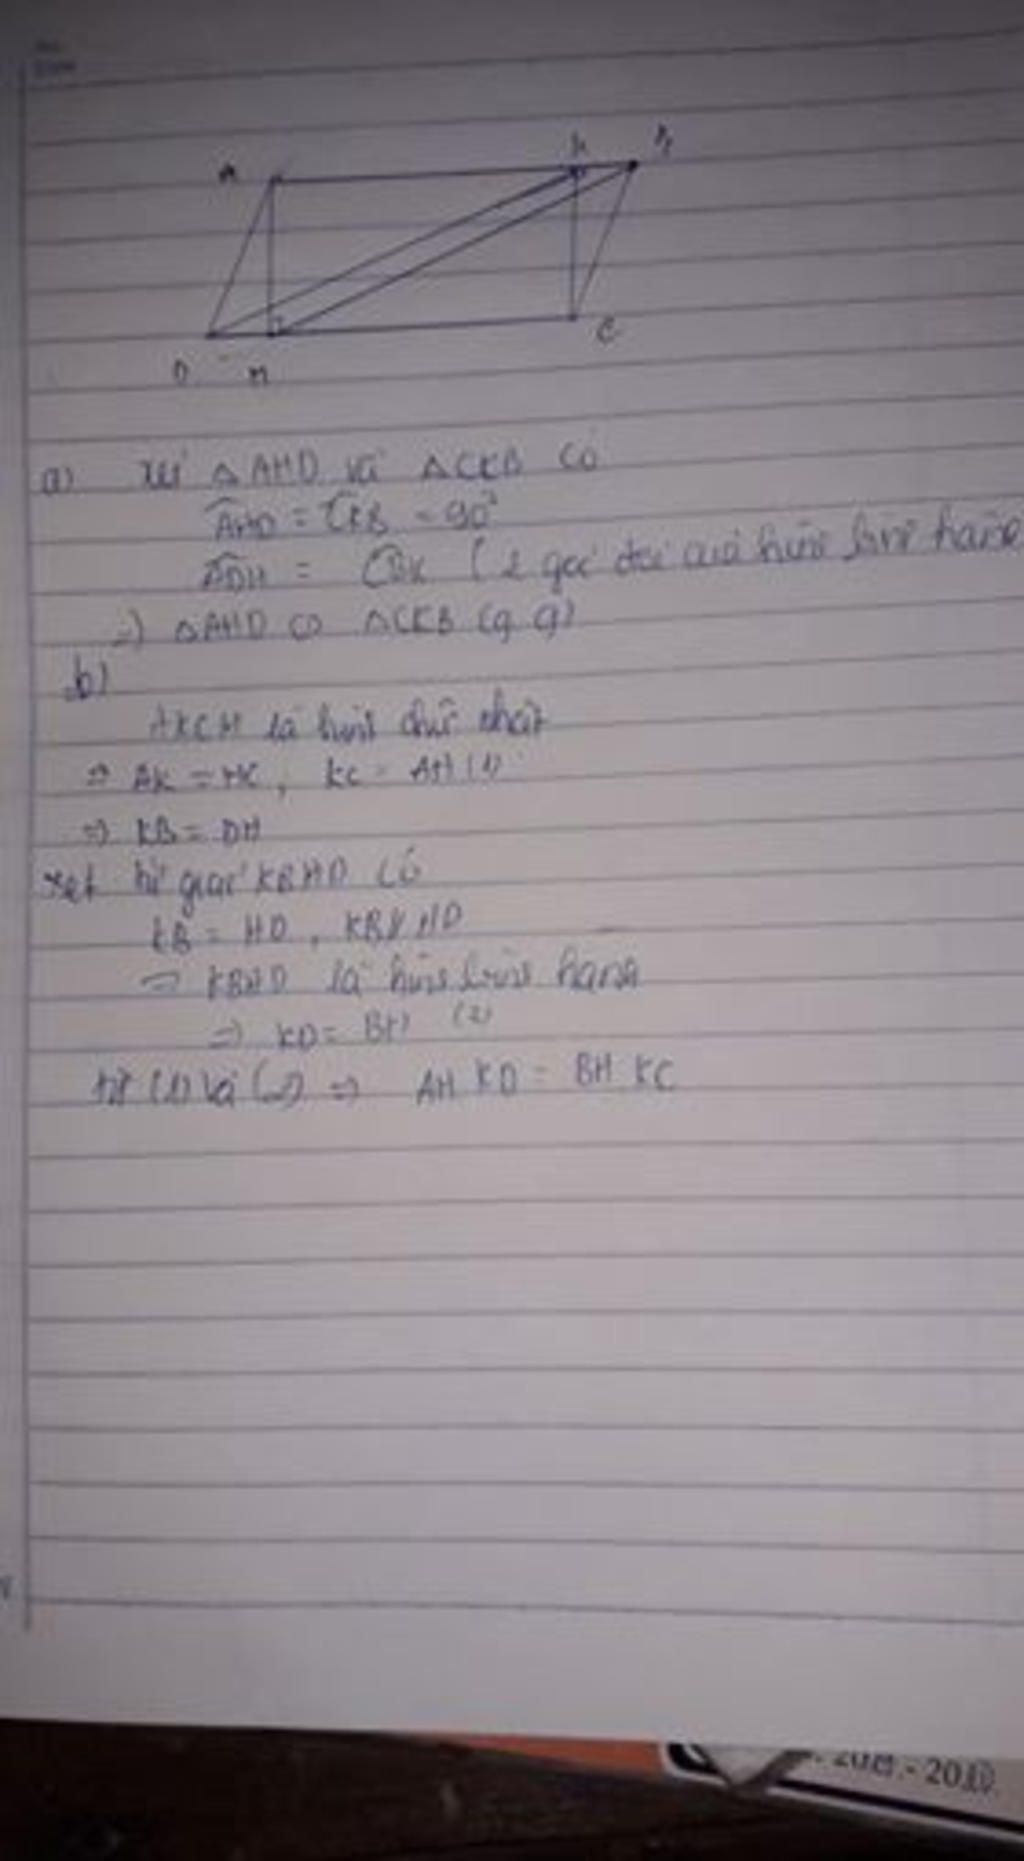 A K B
D H C
a) Xét △AHD và △CKB có
AHD = CKB = 90°
ADH = CBK (2 góc đối của hình bình hành
=) △AHD ∽ △CKB (g.g)
b)
AKCH là hình chữ nhật
=> AK = HC, KC = AH (1)
=> KB = DH
xét tứ giác KBHD có
KB = HD, KB // HD
=> KBHD là hình bình hành
=> KD = BH (2)
từ (1) và (2) => AH.KD = BH.KC